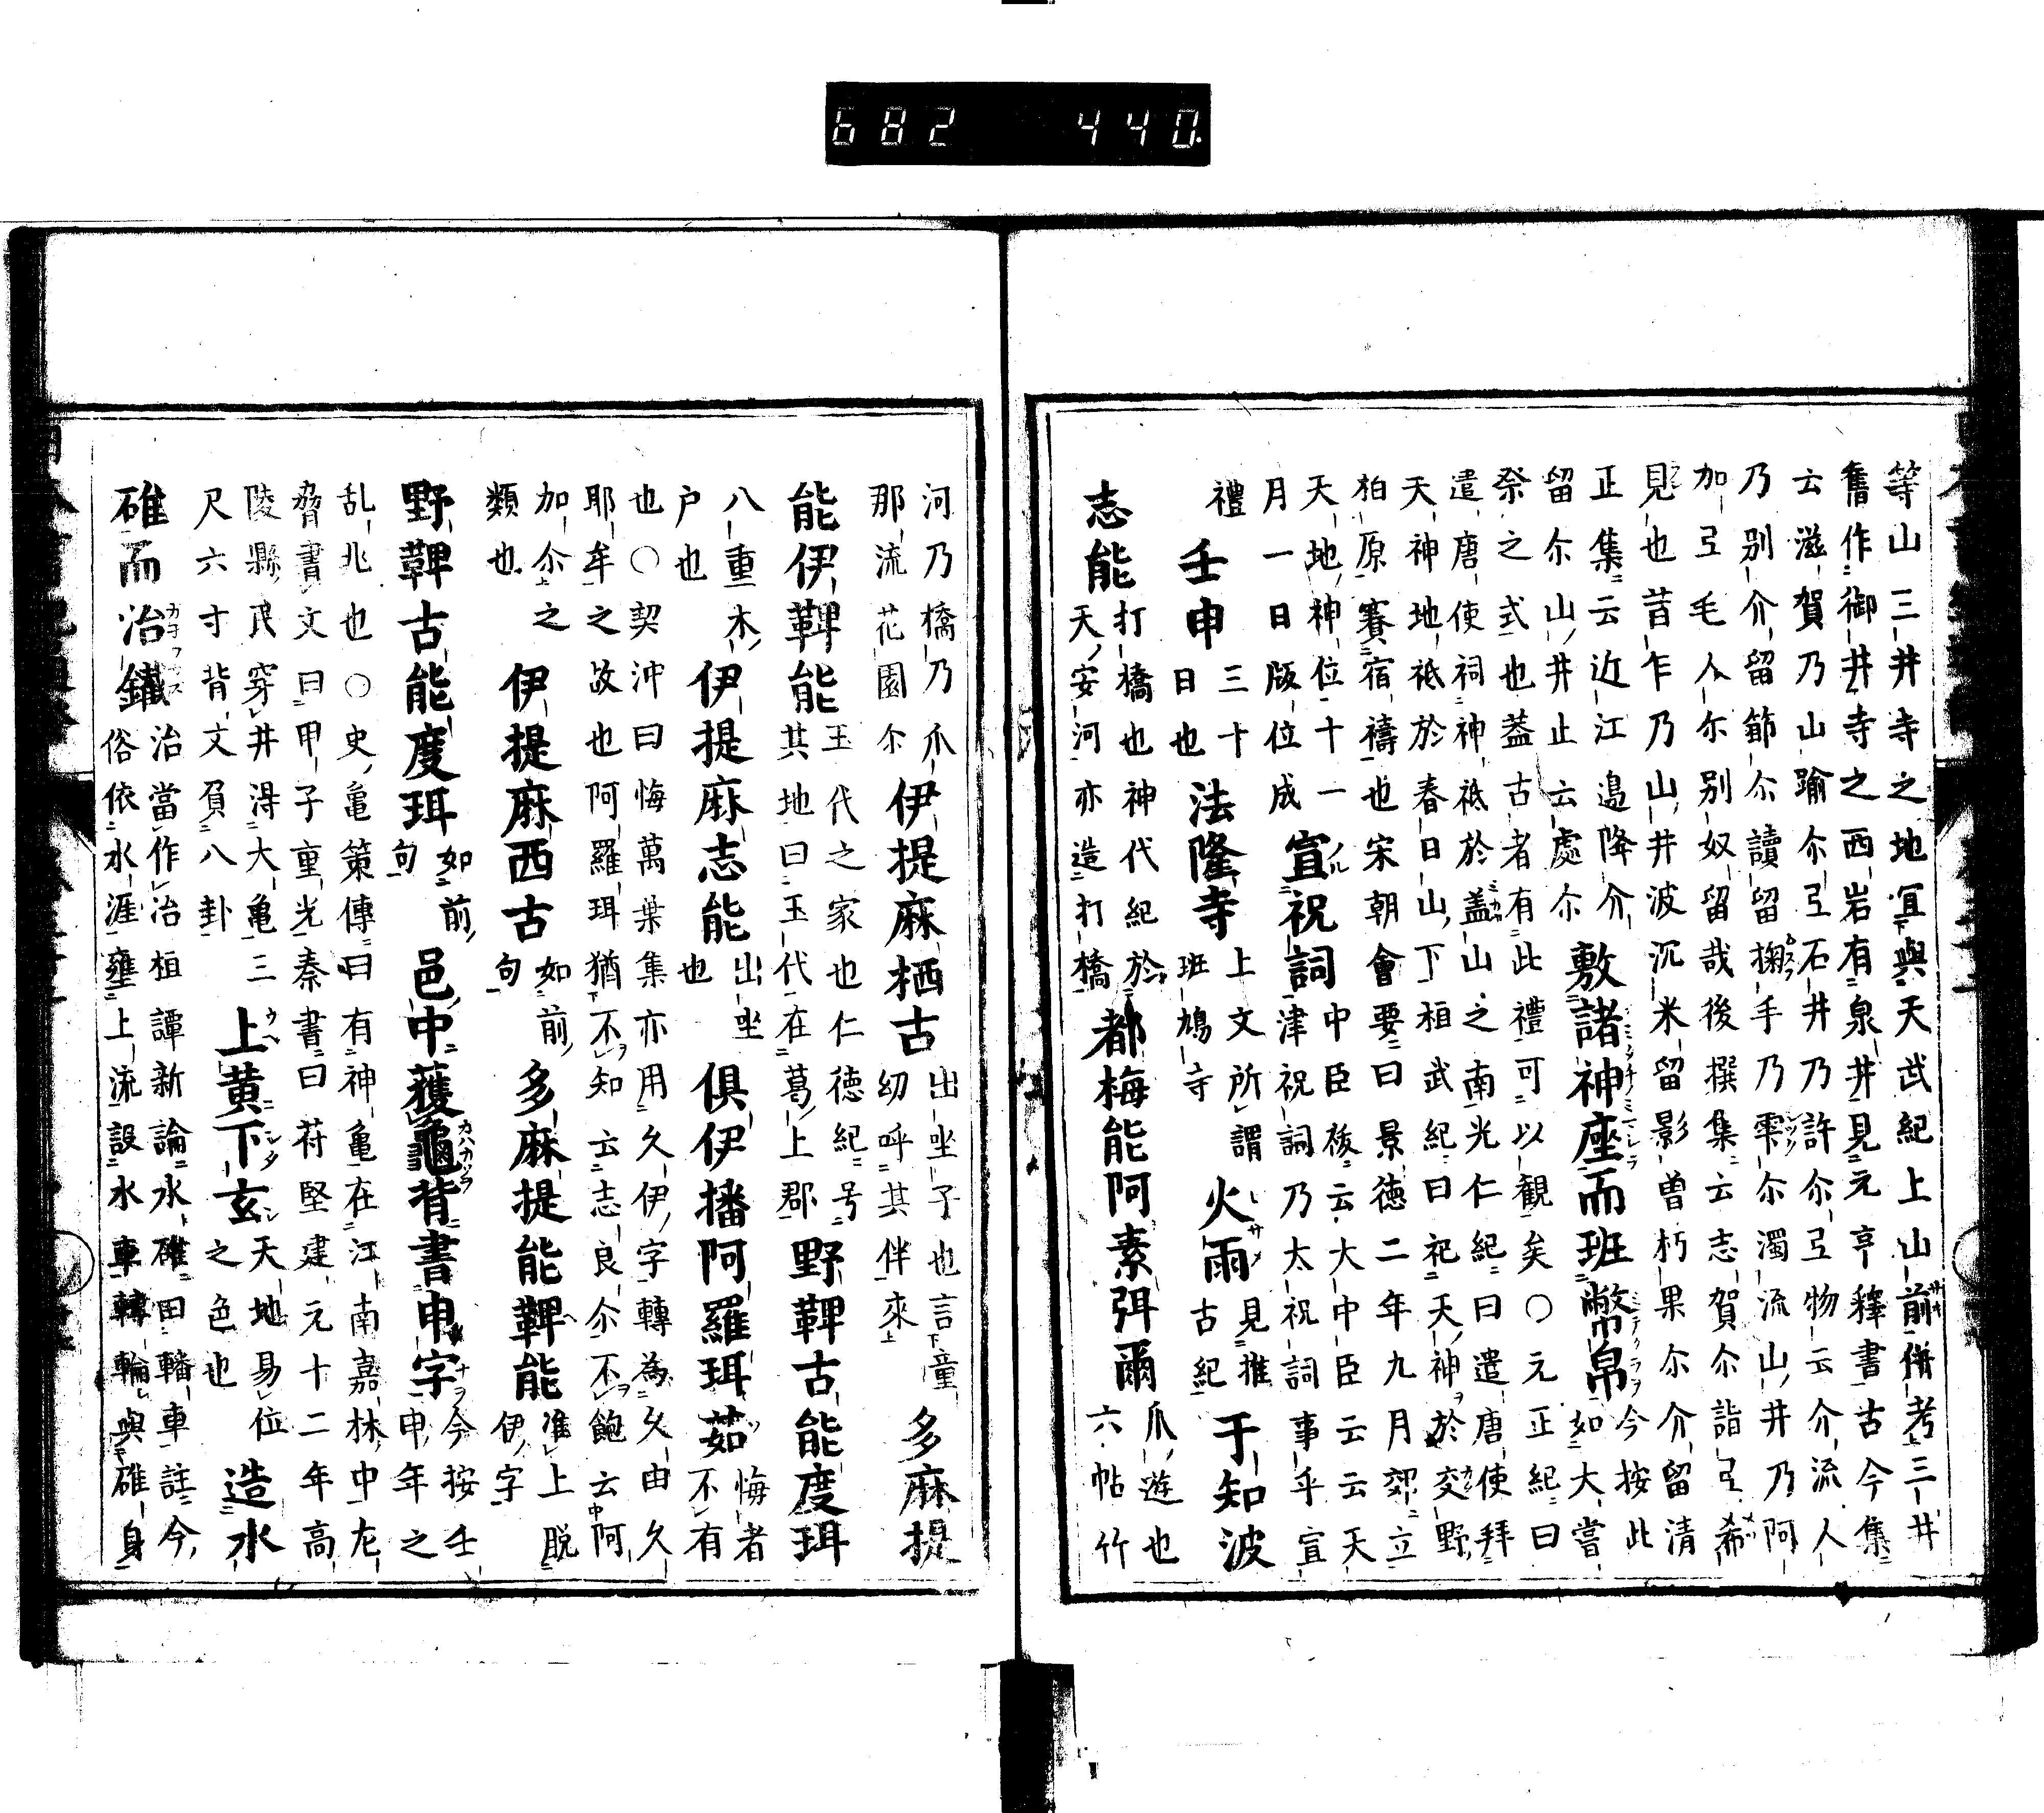 682 440
等山三井寺之地宜與天武紀上山前併考三井
舊作御井寺之西岩有泉井見元亨釋書古今集
云滋賀乃山踰尓弖石井乃許尓弖物云介流人
乃別介留節尓讀留掬手乃雫尓濁流山井乃阿
加弖毛人尓別奴留哉後撰集云志賀尓詣弖希
見也昔乍乃山井波沉米留影曽朽果尓介留清
正集云近江邉降介
留尓山井止云處尓
敷諸神座而班幣帛
今按此
如大嘗
祭之式也蓋古者有此禮可以觀矣〇元正紀曰
遣唐使祠神祇於盖山之南光仁紀曰遣唐使拜
天神地祇於春日山下桓武紀曰祀天神於交野
柏原賽宿禱也宋朝會要曰景徳二年九月郊立
天地神位十一
月一日版位成
宣祝詞
中臣祓云大中臣云云天
津祝詞乃太祝詞事乎宣
禮
壬申
三十
日也
法隆寺
上文所謂
班鳩寺
火雨
見推
古紀
于知波
志能
打橋也神代紀於
天安河亦造打橋
都梅能阿素弭爾
爪遊也
六帖竹
河乃橋乃爪
那流花園尓
伊提麻栖古
出坐子也言童
幼呼其伴來
多麻提
能伊鞞能
玉代之家也仁徳紀号
其地曰玉代在葛上郡
野鞞古能度珥
八重木
户也
伊提麻志能
出坐
也
倶伊播阿羅珥茹
悔者
不有
也〇契沖曰悔萬葉集亦用久伊字轉為乆由久
耶牟之故也阿羅珥猶不知云志良尓不飽云阿
加尓之
類也
伊提麻西古
如前
句
多麻提能鞞能
准上脱
伊字
野鞞古能度珥
如前
句
邑中獲龜背書申字
今按壬
申年之
乱兆也〇史亀策傳曰有神亀在江南嘉林中左
脅書文曰甲子重光秦書曰苻堅建元十二年高
陵縣民穿井得大亀三
尺六寸背文負八卦
上黄下玄
天地易位
之色也
造水
碓而冶鐵
治當作冶桓譚新論水碓田轓車註今
俗依水涯壅上流設水車轉輪與碓身